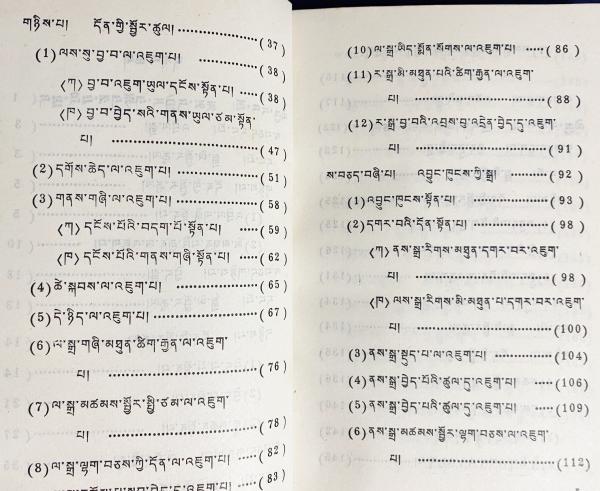 གཉིས་པ། དོན་གྱི་སྦྱོར་ཚུལ།⋯⋯⋯⋯⋯(37)
(1)ལས་སུ་བྱ་བ་ལ་འཇུག་པ། ⋯⋯⋯⋯(38)
〈ཀ〉བྱ་བ་འཇུག་ཡུལ་དངོས་སྟོན་པ།⋯(38)
〈ཁ〉བྱ་བ་བྱེད་སའི་གནས་ཡུལ་ཙམ་སྟོན་
པ། ⋯⋯⋯⋯⋯⋯⋯⋯(47)
(2)དགོས་ཆེད་ལ་འཇུག་པ། ⋯⋯⋯⋯(51)
(3)གནས་གཞི་ལ་འཇུག་པ། ⋯⋯⋯⋯(58)
〈ཀ〉དངོས་པོའི་བདག་པོ་སྟོན་པ། ⋯⋯(59)
〈ཁ〉དངོས་པོའི་གནས་གཞི་སྟོན་པ། ⋯(62)
(4)ཚེ་སྐབས་ལ་འཇུག་པ། ⋯⋯⋯⋯(65)
(5)དེ་ཉིད་ལ་འཇུག་པ། ⋯⋯⋯⋯⋯(67)
(6)ལ་སྒྲ་གཞི་མཐུན་ཚིག་རྒྱན་ལ་འཇུག་
པ། ⋯⋯⋯⋯⋯⋯⋯⋯(76)
(7)ལ་སྒྲ་མཚམས་སྦྱོར་སྤྱི་ཙམ་ལ་འཇུག་
པ། ⋯⋯⋯⋯⋯⋯⋯⋯(78)
(8)ལ་སྒྲ་ལྷག་བཅས་ཀྱི་དོན་ལ་འཇུག་པ། ⋯(82)
(83)
(10)ལ་སྒྲ་ཡིད་སྨོན་སོགས་ལ་འཇུག་པ། ⋯⋯(86)
(11)ར་སྒྲ་མི་མཐུན་པའི་ཚིག་རྒྱན་ལ་འཇུག་
པ། ⋯⋯⋯⋯⋯⋯⋯⋯(88)
(12)ར་སྒྲ་བྱ་བའི་འབྲས་བུ་འདྲེན་བྱེད་དུ་འཇུག་
པ། ⋯⋯⋯⋯⋯⋯⋯⋯(91)
ས་བཅད་བཞི་པ། འབྱུང་ཁུངས་ཀྱི་སྒྲ། ⋯⋯(92)
(1)འབྱུང་ཁུངས་སྟོན་པ། ⋯⋯⋯⋯(93)
(2)དགར་བའི་དོན་སྟོན་པ། ⋯⋯⋯⋯(98)
〈ཀ〉ནས་སྒྲ་རིགས་མཐུན་དགར་བར་འཇུག་
པ། ⋯⋯⋯⋯⋯⋯⋯⋯(98)
〈ཁ〉ལས་སྒྲ་རིགས་མི་མཐུན་པ་དགར་བར་འཇུག་
པ། ⋯⋯⋯⋯⋯⋯⋯⋯(100)
(3)ནས་སྒྲ་སྡུད་པ་ལ་འཇུག་པ། ⋯⋯⋯(104)
(4)ནས་སྒྲ་བྱེད་པོའི་ཚུལ་དུ་འཇུག་པ། ⋯⋯(106)
(5)ནས་སྒྲ་བྱེད་པའི་ཚུལ་དུ་འཇུག་པ། ⋯⋯(109)
(6)ནས་སྒྲ་མཚམས་སྦྱོར་ལྷག་བཅས་ལ་འཇུག་
པ། ⋯⋯⋯⋯⋯⋯⋯⋯(112)